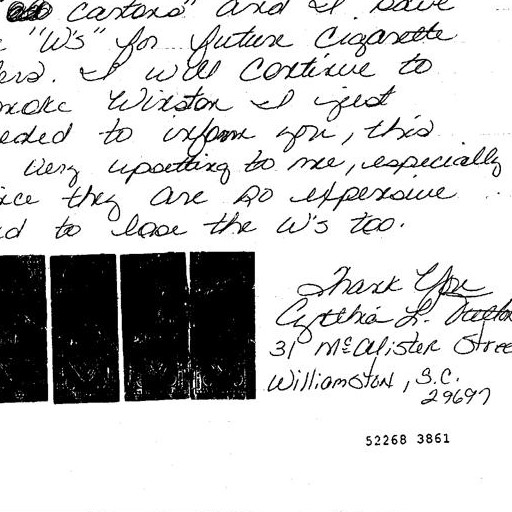 cartons" and I save
"W's" for future cigarette
I will continue to
Winston I just
to inform you, this
very upsetting to me, especially
they are so expensive
to lose the W's too.
Thank You
Cynthia L.
31 McAlister Stree
Williamston, S.C.
29697
52268 3861